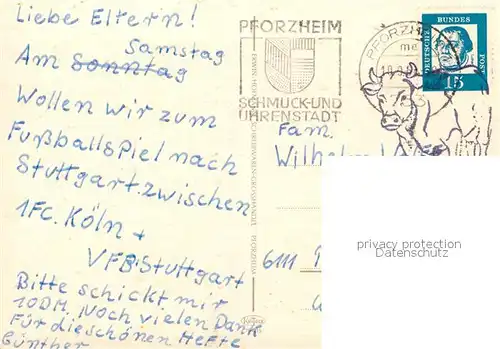 Liebe Eltern!
Samstag
Am Sonntag
Wollen wir zum
Fußballspiel nach
Stuttgart.zwischen
1FC. Köln +
VFB.Stuttgart
Bitte schickt mir
10DM. Noch vielen Dank
Für die schönen Hefte
Günther
PFORZHEIM
SCHMUCK-UND
UHRENSTADT
PFORZH
DEUTSCHE
BUNDES
POST
15
Fam.
Wilhelm
6111
privacy protection
Datenschutz